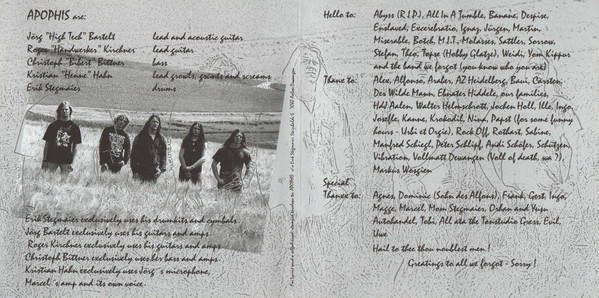 APOPHIS are:
Jörg "High Tech" Bartelt lead and acoustic guitar
Roger "Handwerker" Kirchner lead guitar
Christoph "Bikert" Bittner bass
Kristian "Henne" Hahn lead growls, grunts and screams
Erik Stegmaier drums
Erik Stegmaier exclusively uses his drumkits and cymbals
Jörg Bartelt exclusively uses his guitars and amps
Roger Kirchner exclusively uses his guitars and amps
Christoph Bittner exclusively uses her bass and amps.
Kristian Hahn exclusively uses Jörg´s microphone,
Marcel´s amp and its own voice.
Hello to: Abyss (R.I.P.), All In A Tumble, Banane, Despise,
Enslaved, Excerebratio, Ignaz, Jürgen, Martin,
Miserable, Botch, M.I.T., Molasses, Sattler, Sorrow,
Stefan, Theo, Topsy (Hobby Glatze), Weidi, Yom Kippur
and the band we forgot (you know who you are)
Thanx to: Alex, Alfonso, Araber, AZ Heidelberg, Baui, Carsten,
Des Wilde Mann, Ebnater Hiddele, our families,
HdJ Aalen, Walter Helmschrott, Jochen Holl, Ille, Ingo,
Joseffe, Kanne, Krokodil, Nina, Papst (for some funny
hours - Urbi et Orgie), Rock Off, Rothart, Sabine,
Manfred Schiegl, Peter Schlipf, Andi Schöfer, Schitzen,
Vibration, Vollmatt Dewangen (Voll of death, wa ?),
Markus Wosgien
Special
Thanex to: Agnes, Dominic (Sohn des Alfons), Frank, Gert, Ingo,
Magge, Marcel, Mom Stegmaier, Orhan and Yusu
Autohandel, Tobi, All ata the Tonstudio Gress, Evil,
Uwe
Hail to thee thou noublest men !
Greatings to all we forgot - Sorry !